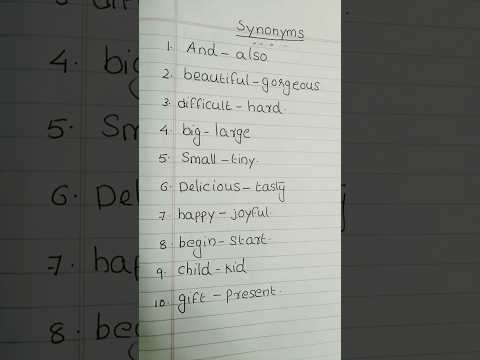 Synonyms
1. And - also
2. beautiful - gorgeous
3. difficult - hard.
4. big - large
5. Small - tiny.
6. Delicious - tasty
7. happy - joyful.
8. begin - Start.
9. child - kid
10. gift - Present.